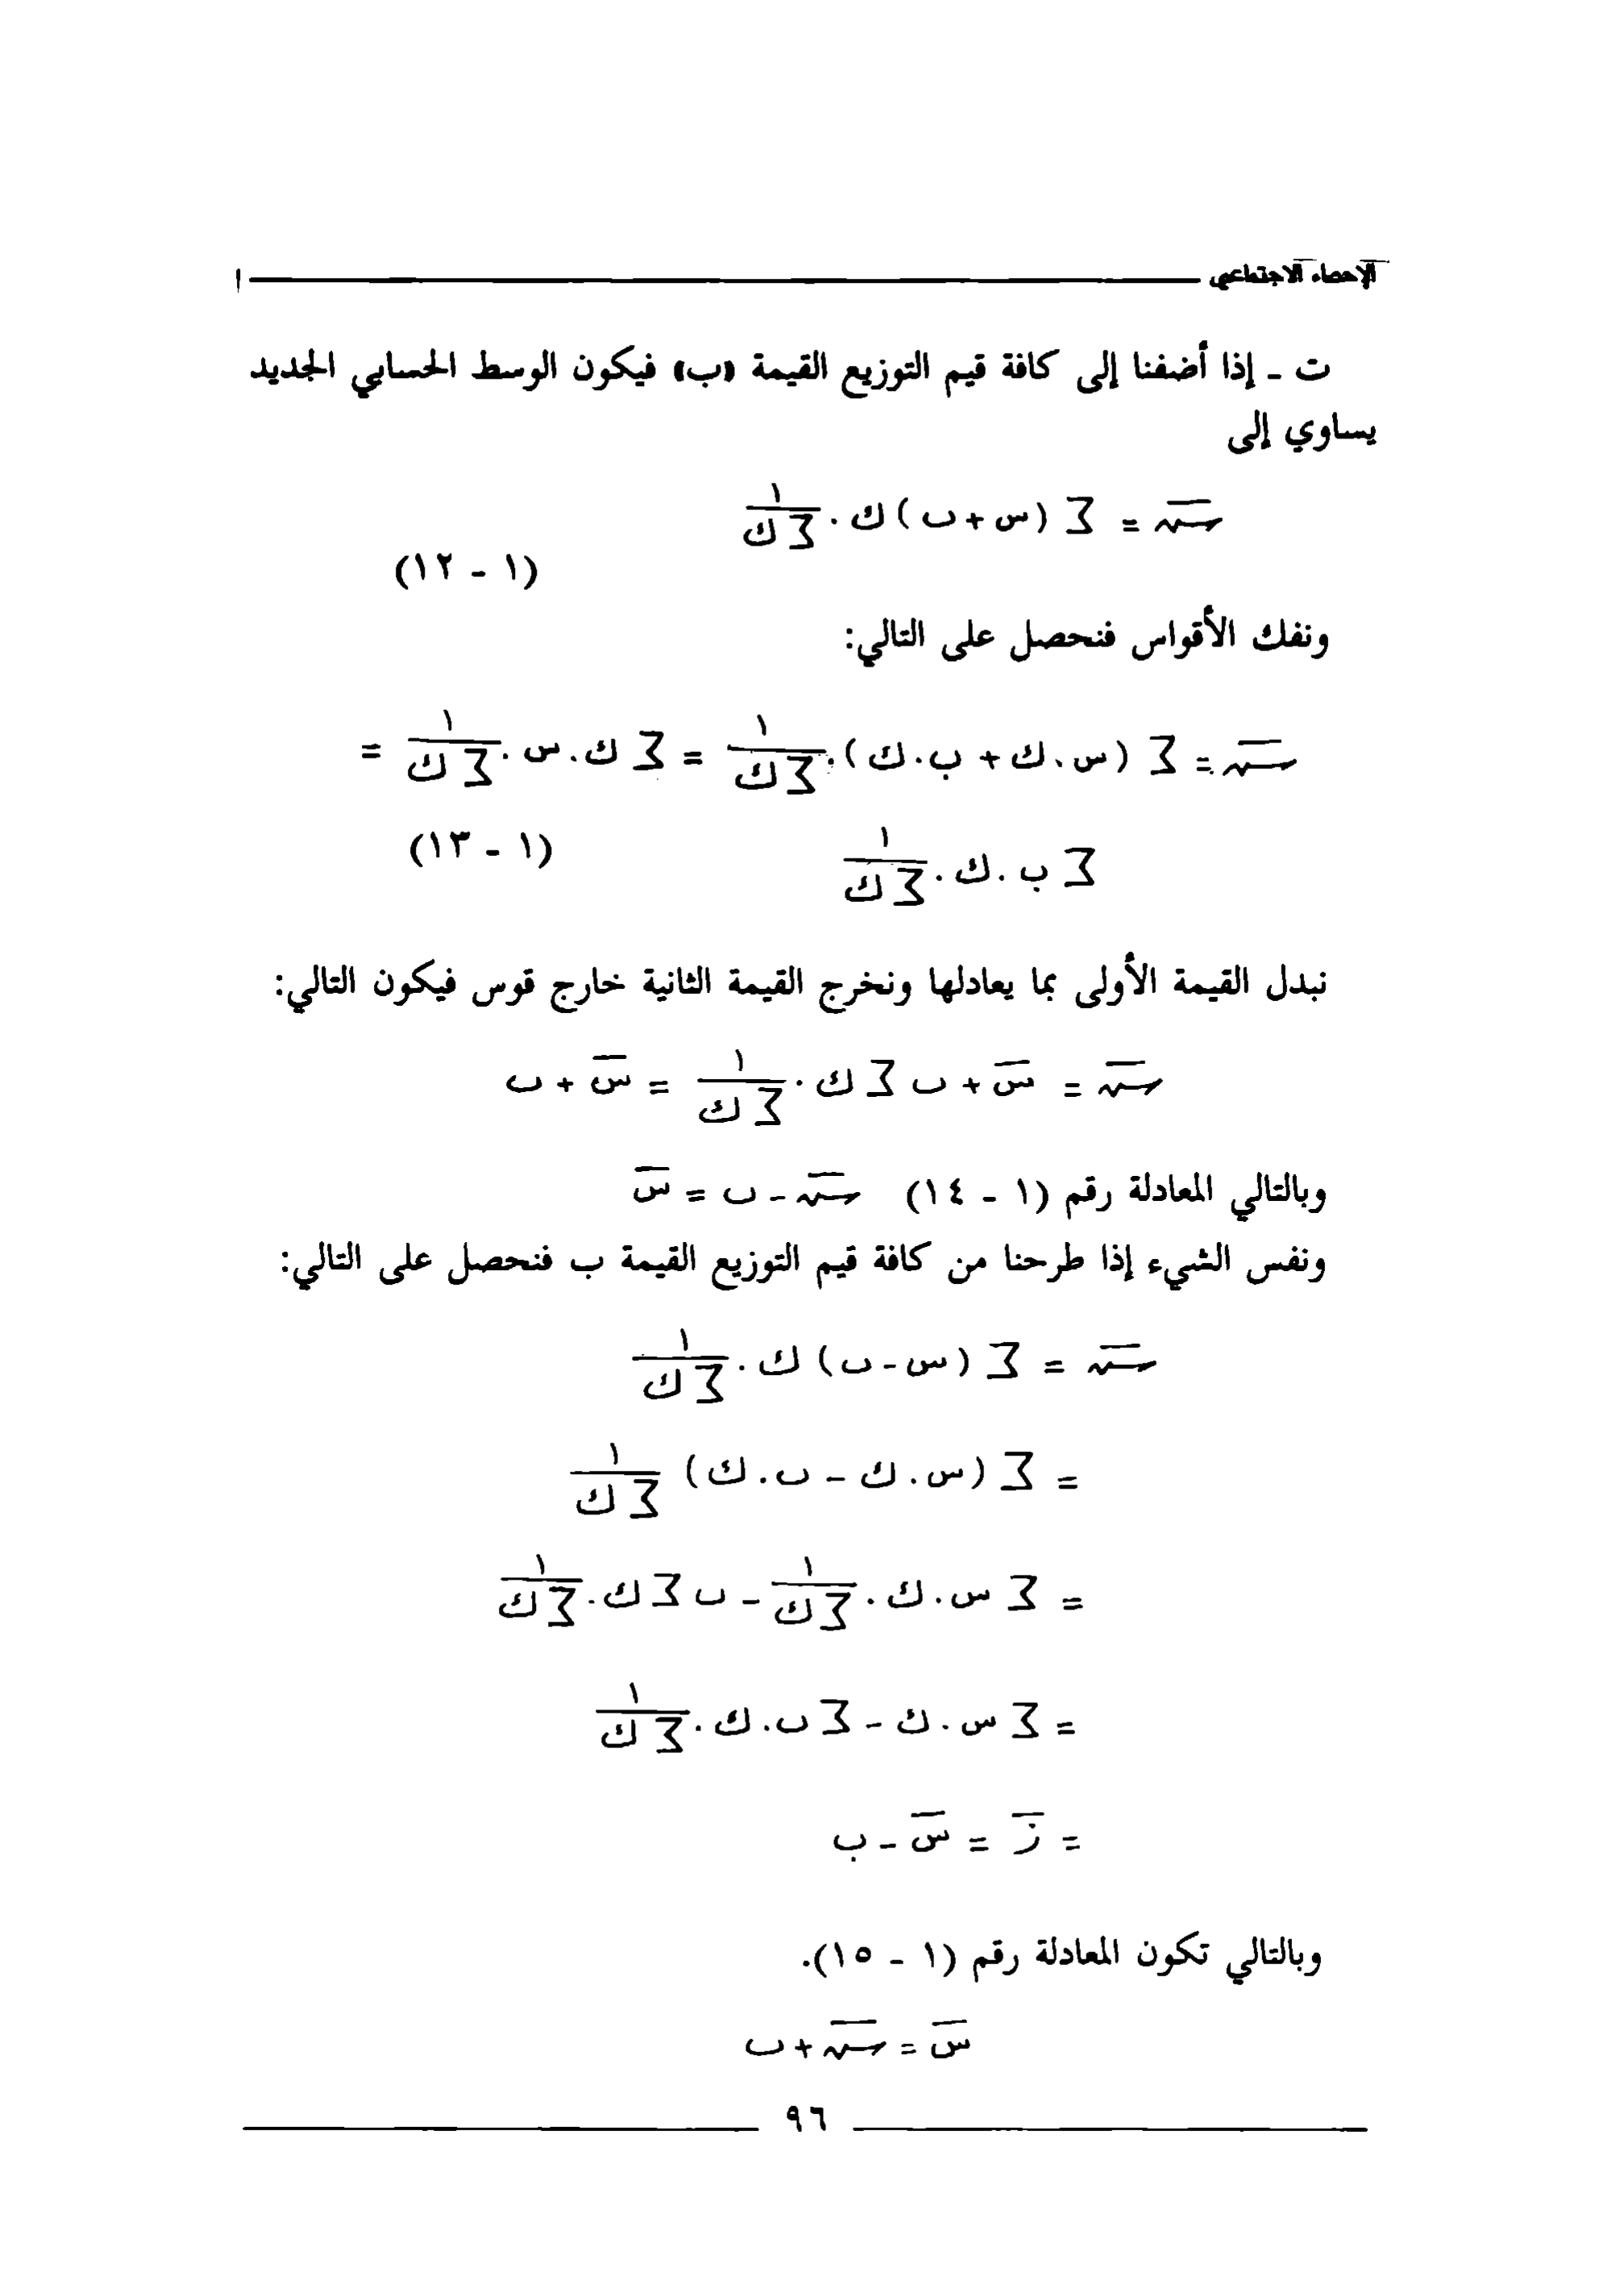 الإحصاء الاجتماعي
ت ـ إذا أضفنا إلى كافة قيم التوزيع القيمة «ب» فيكون الوسط الحسابي الجديد
يساوي إلى
سـَ = Σ (س + ب) ك . ١/Σ ك
(١ - ١٢)
ونفك الأقواس فنحصل على التالي:
سـَ = Σ (س . ك + ب . ك) . ١/Σ ك = Σ ك . س . ١/Σ ك =
Σ ب . ك . ١/Σ ك (١ - ١٣)
نبدل القيمة الأولى بما يعادلها ونخرج القيمة الثانية خارج قوس فيكون التالي:
سـَ = س̅ + ب Σ ك . ١/Σ ك = س̅ + ب
وبالتالي المعادلة رقم (١ - ١٤) سـَ - ب = س̅
ونفس الشيء إذا طرحنا من كافة قيم التوزيع القيمة ب فنحصل على التالي:
سـَ = Σ (س - ب) ك . ١/Σ ك
= Σ (س . ك - ب . ك) ١/Σ ك
= Σ س . ك . ١/Σ ك - ب Σ ك . ١/Σ ك
= Σ س . ك - Σ ب . ك . ١/Σ ك
= ز̅ = س̅ - ب
وبالتالي تكون المعادلة رقم (١ - ١٥).
س̅ = سـَ + ب
٩٦